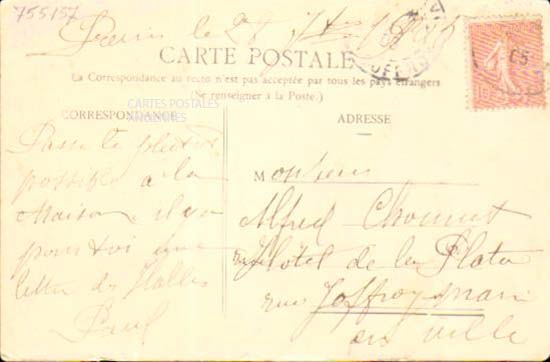 755157
Paris le 28 7bre 1905
CARTE POSTALE
La Correspondance au recto n'est pas acceptée par tous les pays étrangers
(Se renseigner à la Poste.)
CARTES POSTALES
ANCIENNES
CORRESPONDANCE
Passe le plutôt
possible à la
maison, il y a
pour toi une
lettre des Halles
Paul
ADRESSE
Monsieur
Alfred
Hôtel de la Plata
rue
en ville
05